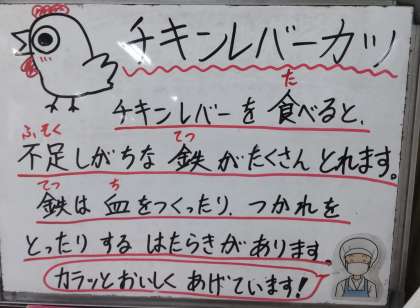 チキンレバーカツ
チキンレバーを食べると、
不足しがちな鉄がたくさんとれます。
鉄は血をつくったり、つかれを
とったりするはたらきがあります。
カラッとおいしくあげています!